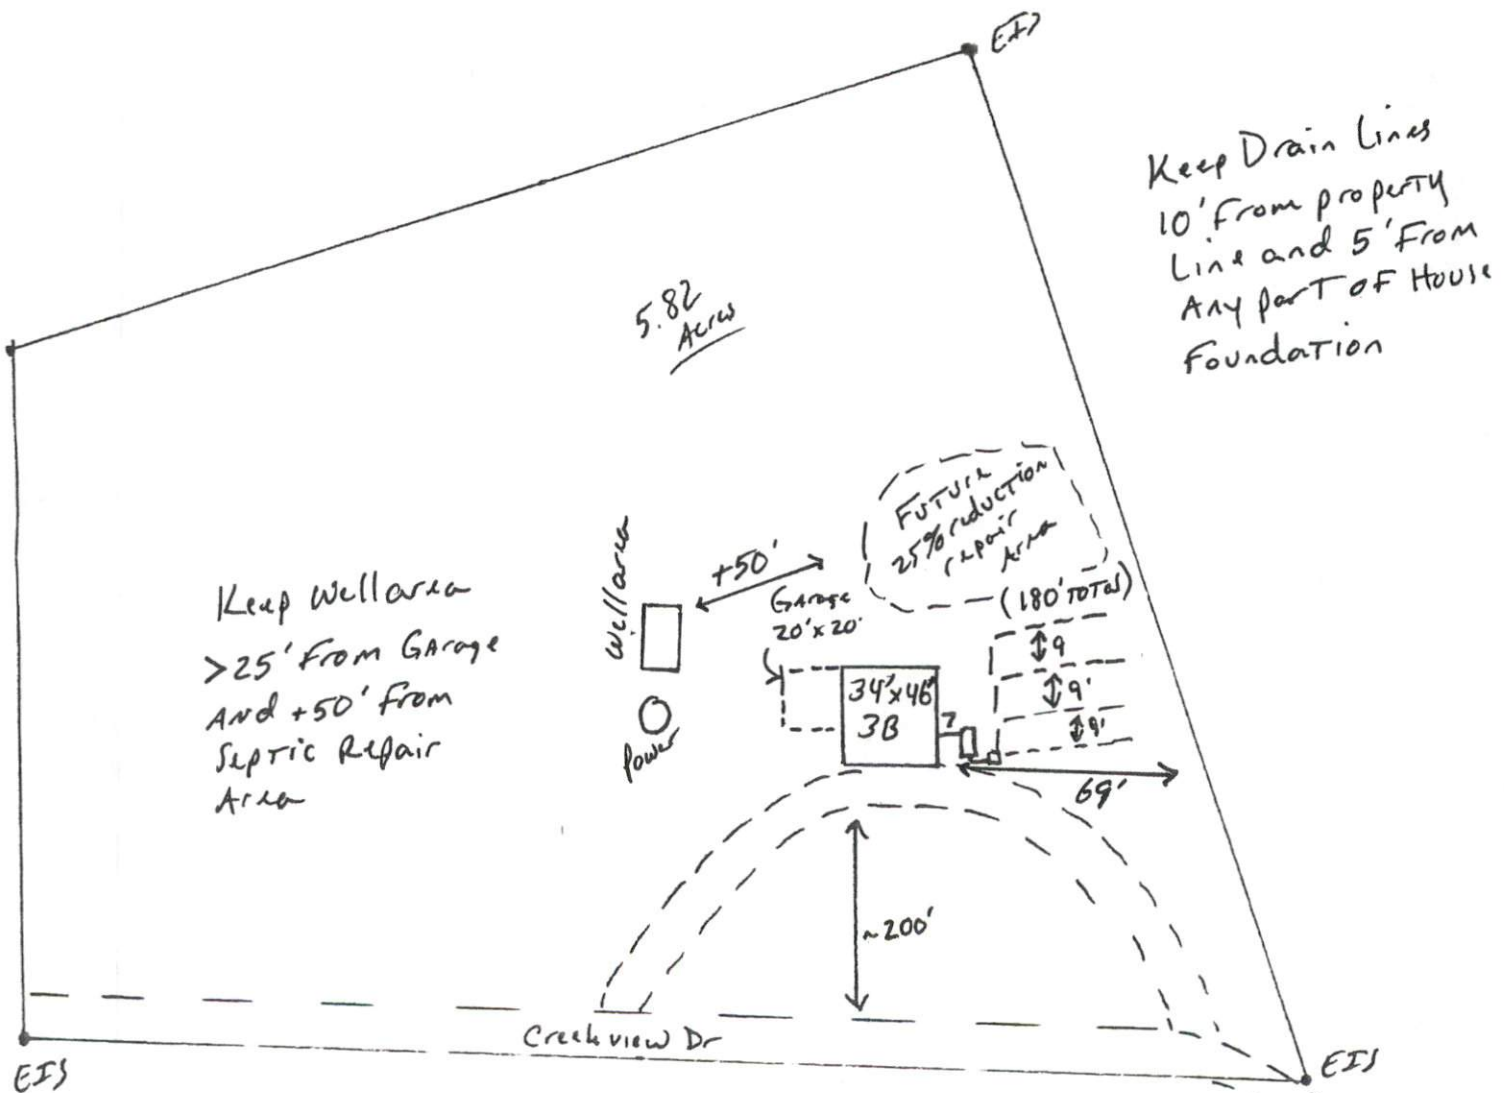 EIS
Keep Drain Lines
10' From property
Line and 5' From
Any part of House
Foundation
5.82
Acres
Future
25% reduction
repair
Area
(180' Total)
+50'
Wellarea
Garage
20'x20'
9
9'
9'
34'x46'
3B
7
Power
69'
Keep Wellarea
>25' From Garage
And +50' From
Septic Repair
Area
~200'
Creekview Dr
EIS
EIS